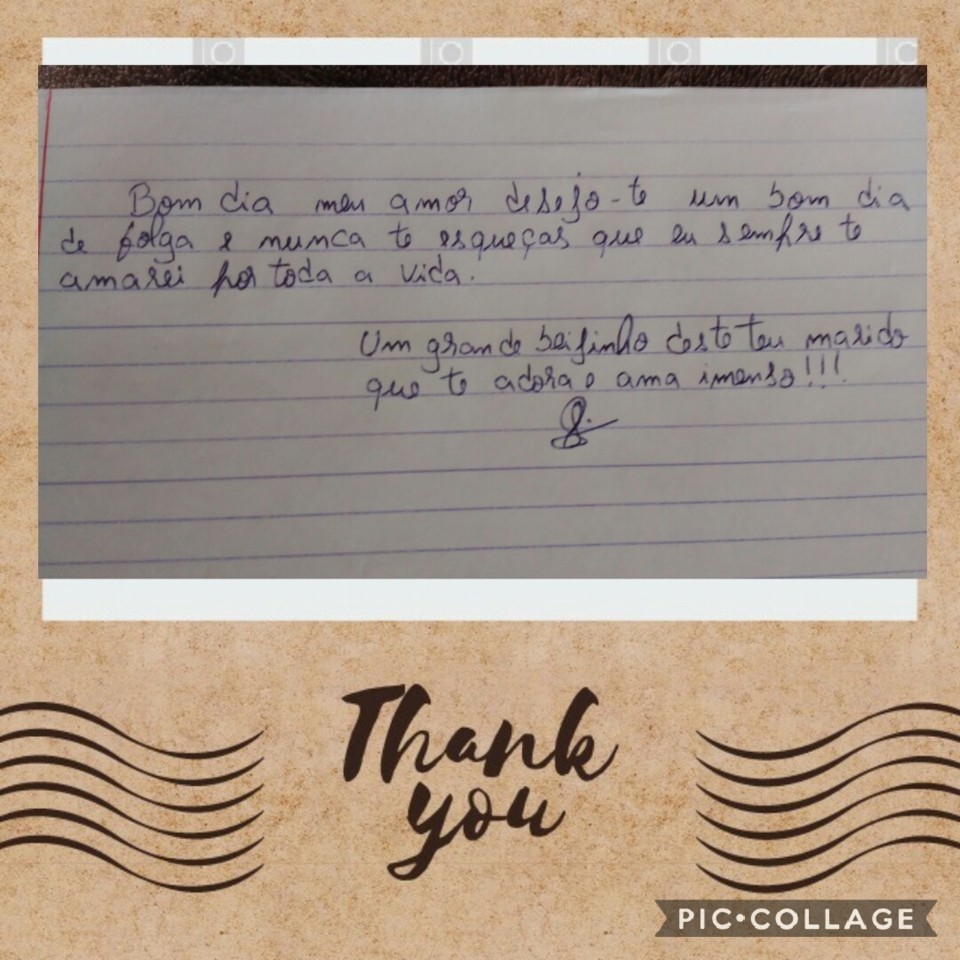 Bom dia meu amor desejo-te um bom dia
de folga e nunca te esqueças que eu sempre te
amarei por toda a vida.
Um grande beijinho deste teu marido
que te adora e ama imenso!!!
Thank
you
PIC•COLLAGE